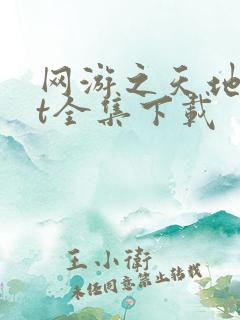 网游之天地
t全集下载
王小衛
未经同意禁止转载